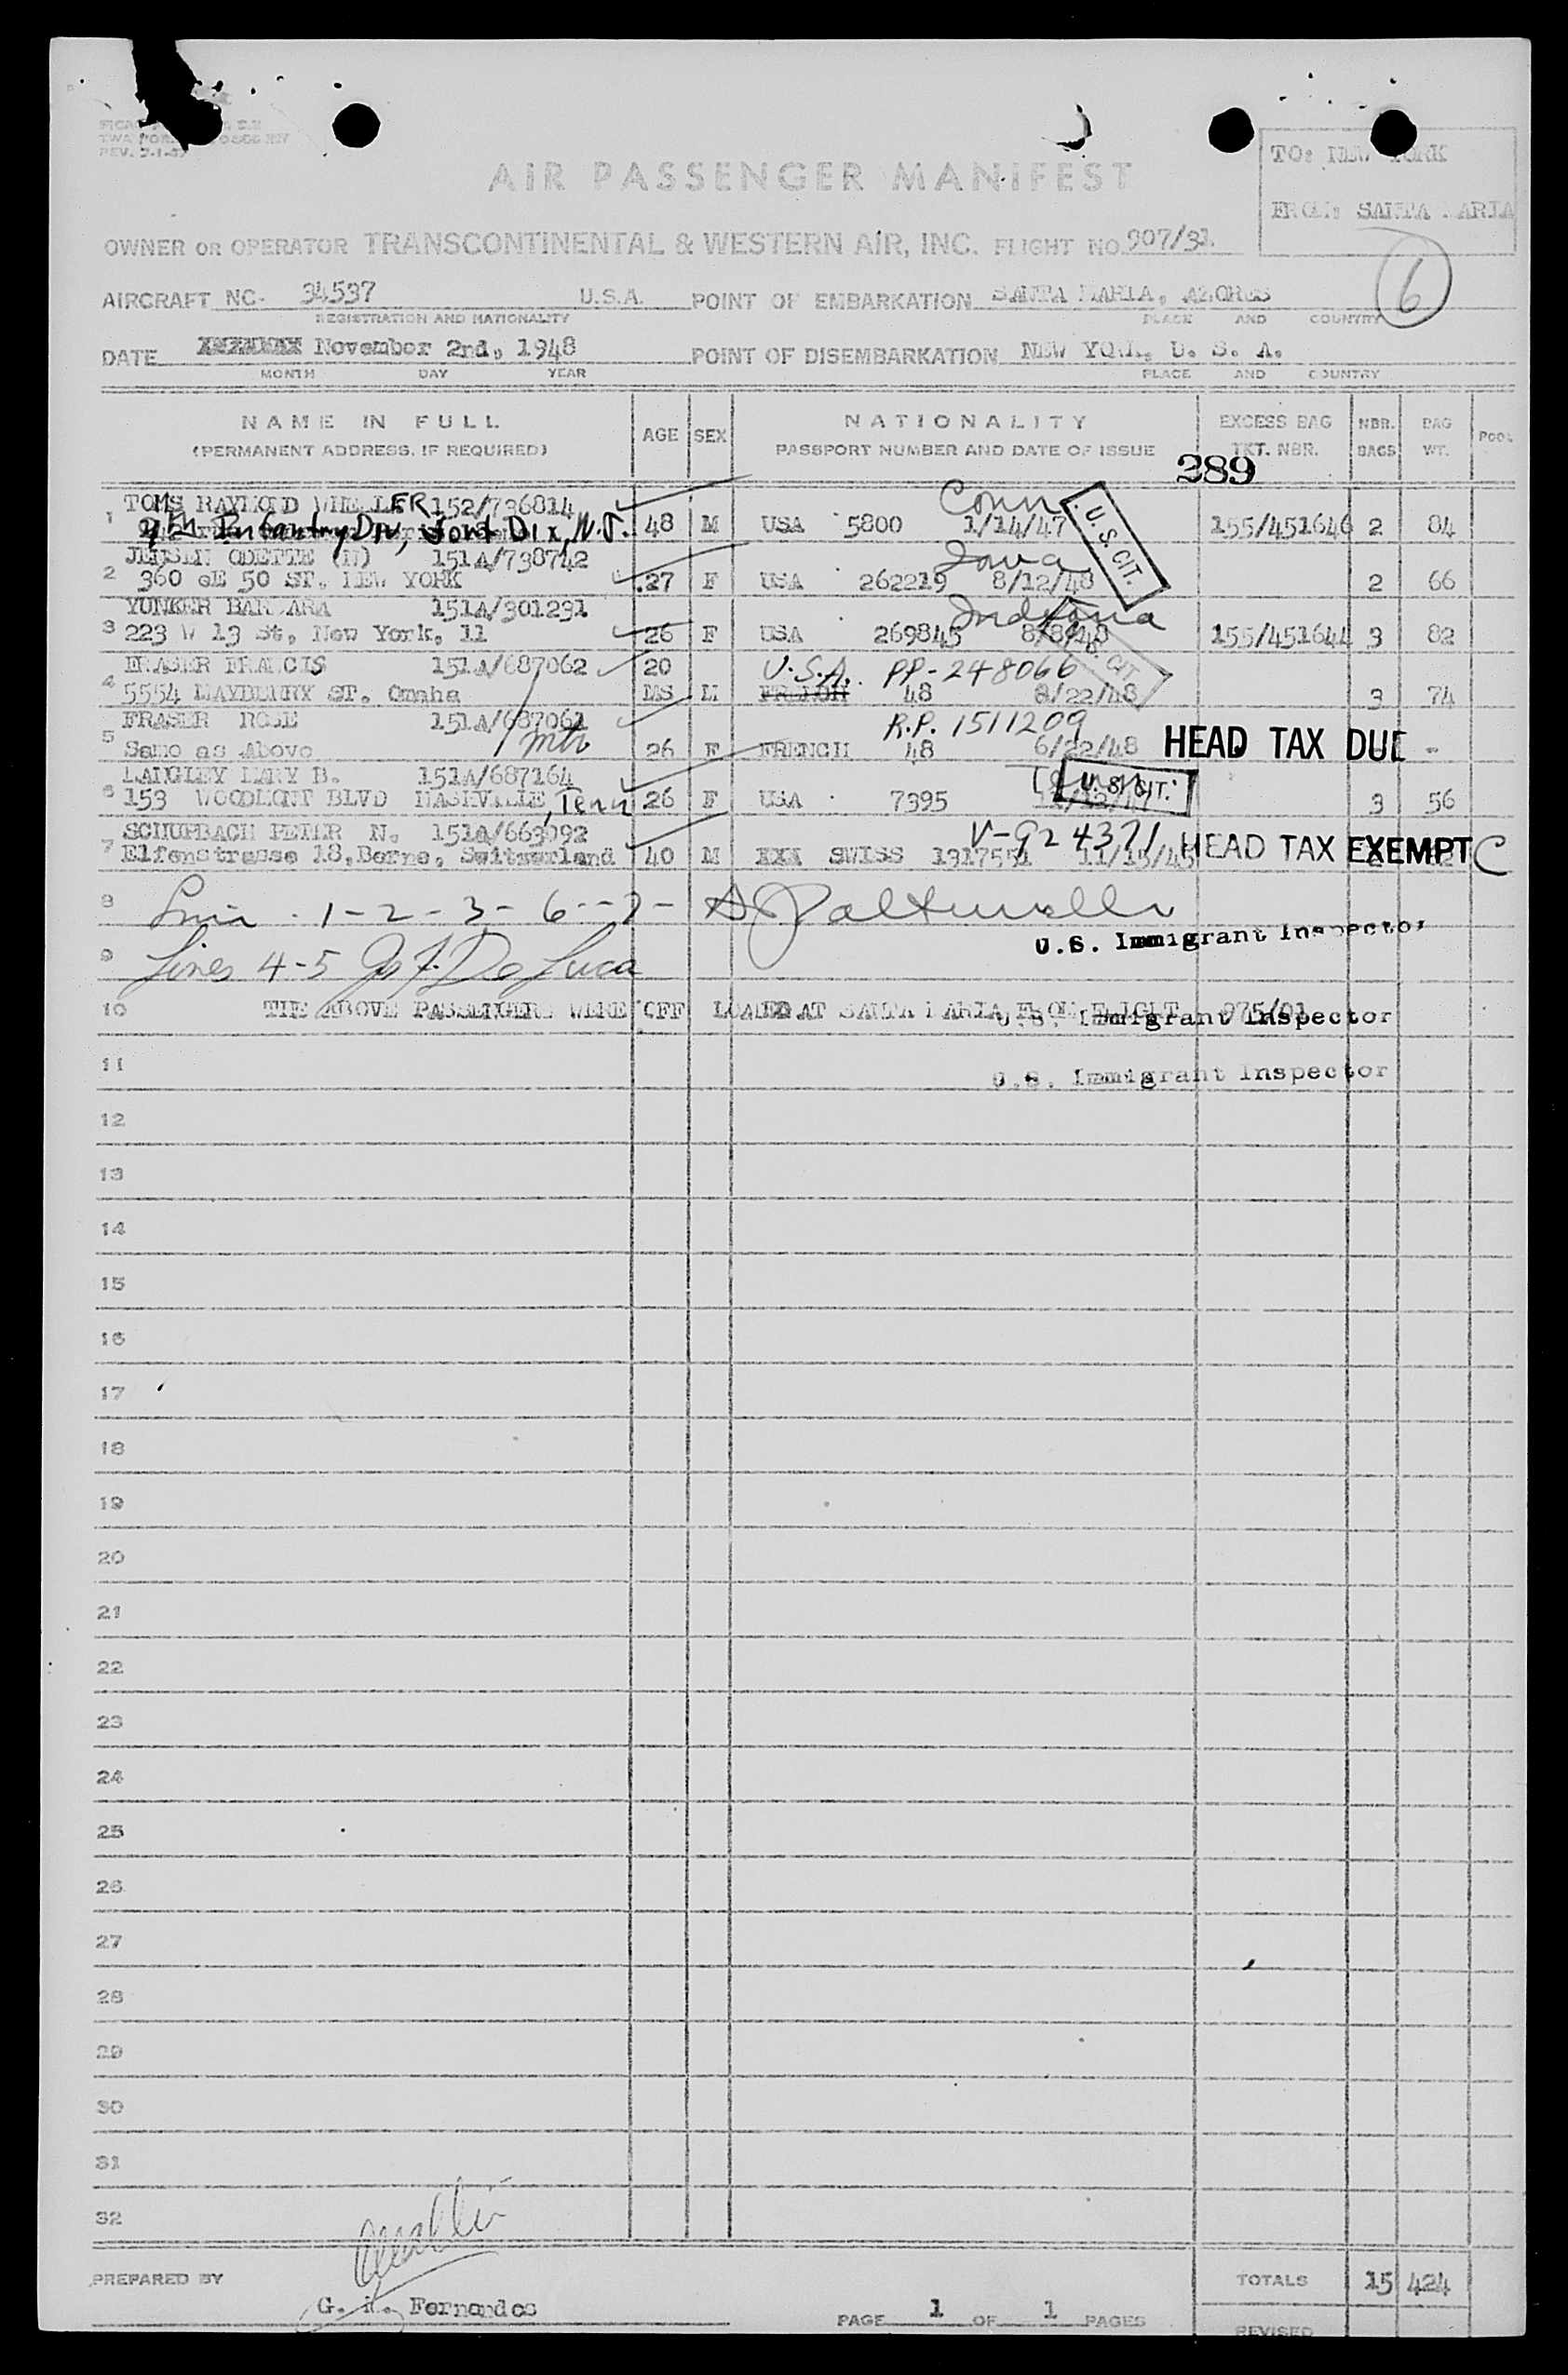 REV. 7-1-47
TO: NEW YORK
AIR PASSENGER MANIFEST
FROM: SANTA MARIA
OWNER OR OPERATOR TRANSCONTINENTAL & WESTERN AIR, INC. FLIGHT NO. 907/31
6
AIRCRAFT NC- 34537 U.S.A. POINT OF EMBARKATION SANTA MARIA, AZORES
REGISTRATION AND NATIONALITY PLACE AND COUNTRY
DATE November 2nd, 1948 POINT OF DISEMBARKATION NEW YORK, U. S. A.
MONTH DAY YEAR PLACE AND COUNTRY
NAME IN FULL AGE SEX NATIONALITY EXCESS BAG NBR. BAG POOL
(PERMANENT ADDRESS, IF REQUIRED) PASSPORT NUMBER AND DATE OF ISSUE TKT. NBR. BAGS WT.
289
TOMS RAYMOND WHEELER 152/736814 Conn
1 9th Infantry Div, Fort Dix, N.J. 48 M USA 5800 1/14/47 U.S. CIT. 155/451646 2 84
JENSEN ODETTE (N) 151A/738742 Iowa
2 360 E 50 ST. NEW YORK 27 F USA 262219 8/12/48 2 66
YUNKER BARBARA 151A/301231 Indiana
3 223 W 13 St, New York, 11 26 F USA 269845 8/8/48 155/451644 3 82
FRASER FRANCIS 151A/687062 20 U.S.A. PP-248066 U.S. CIT.
4 5554 MAYBERRY ST. Omaha MS M FRENCH 48 8/22/48 3 74
FRASER ROSE 151A/687061 R.P. 1511209
5 Same as Above 26 F FRENCH 48 6/22/48 HEAD TAX DUE
LANGLEY MARY B. 151A/687164 U.S. CIT.
6 153 WOODMONT BLVD NASHVILLE, Tenn 26 F USA 7395 3 56
SCHUPBACH PETER N. 151A/663092 V-924371 HEAD TAX EXEMPT C
7 Elfenstrasse 18, Berne, Switzerland 40 M XXX SWISS 1317551 11/15/45
8 1-2-3-6-7-
U.S. Immigrant Inspector
9 Lines 4-5 Jos. F. De Luca
10 THE ABOVE PASSENGERS WERE OFF LOADED AT SANTA MARIA FROM FLIGHT 975/01
U.S. Immigrant Inspector
11 U.S. Immigrant Inspector
12
13
14
15
16
17
18
19
20
21
22
23
24
25
26
27
28
29
30
31
32
PREPARED BY TOTALS 15 424
G. R. Fernandes
PAGE 1 OF 1 PAGES
REVISED